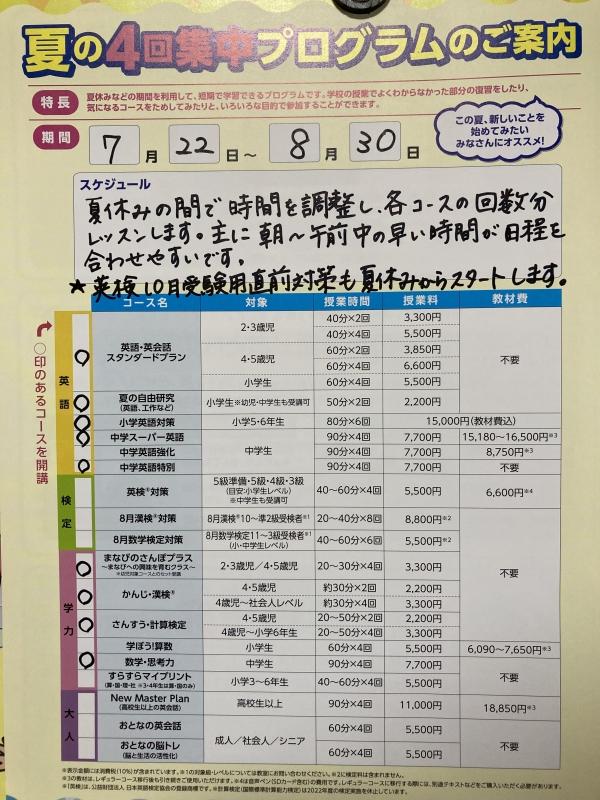 夏の4回集中プログラムのご案内
特長
夏休みなどの期間を利用して、短期で学習できるプログラムです。学校の授業でよくわからなかった部分の復習をしたり、
気になるコースをためしてみたりと、いろいろな目的で参加することができます。
期間
7月22日～8月30日
この夏、新しいことを
始めてみたい
みなさんにオススメ!
スケジュール
夏休みの間で時間を調整し、各コースの回数分
レッスンします。主に朝～午前中の早い時間が日程を
合わせやすいです。
★英検10月受験用直前対策も夏休みからスタートします。
○印のあるコースを開講
コース名 対象 授業時間 授業料 教材費
英語
英語・英会話
スタンダードプラン
2・3歳児 40分×2回 3,300円 不要
40分×4回 5,500円
4・5歳児 60分×2回 3,850円
60分×4回 6,600円
小学生 60分×4回 5,500円
夏の自由研究
(英語、工作など)
小学生※幼児・中学生も受講可 50分×2回 2,200円
小学英語対策 小学5・6年生 80分×6回 15,000円(教材費込)
中学スーパー英語 中学生 90分×4回 7,700円 15,180～16,500円※3
中学英語強化 90分×4回 7,700円 8,750円※3
中学英語特別 90分×4回 7,700円 不要
検定
英検®対策
5級準備・5級・4級・3級
(目安:小学生レベル)
※中学生も受講可
40～60分×4回 5,500円 6,600円※4
8月漢検®対策 8月漢検®10～準2級受検者※1 20～40分×8回 8,800円※2 不要
8月数学検定対策 8月数学検定11～3級受検者※1
(小・中学生レベル)
40～60分×6回 5,500円※2
学力
まなびのさんぽプラス
～まなびへの興味を育むクラス～
※幼児対象コースとのセット受講
2・3歳児／4・5歳児 20～30分×4回 3,300円
かんじ・漢検® 4・5歳児 約30分×2回 2,200円
4歳児～社会人レベル 約30分×4回 3,300円
さんすう・計算検定 4・5歳児 20～50分×2回 2,200円
4歳児～小学6年生 20～50分×4回 3,300円
学ぼう!算数 小学生 60分×4回 5,500円 6,090～7,650円※3
数学・思考力 中学生 90分×4回 7,700円 不要
すらすらマイプリント
(算・国・理・社 ※3・4年生は算・国のみ)
小学3～6年生 40～60分×4回 5,500円
大人
New Master Plan
(高校生以上の英会話)
高校生以上 90分×4回 11,000円 18,850円※3
おとなの英会話 成人／社会人／シニア 60分×4回 5,500円 不要
おとなの脳トレ
(脳と生活の活性化)
60分×4回 5,500円
※表示金額には消費税(10%)が含まれています。※1の対象級・レベルについては教室にお問い合わせください。※2に検定料は含まれません。
※3の教材は、レギュラーコース移行後も引き続きご使用いただけます。※4は音声ペン(SDカード含む)の費用です。レギュラーコースに移行する際には、別途テキストなどをご購入いただく必要があります。
※「英検」は、公益財団法人 日本英語検定協会の登録商標です。※計算検定(国際標準計算能力検定)は2022年度の検定実施を休止しています。